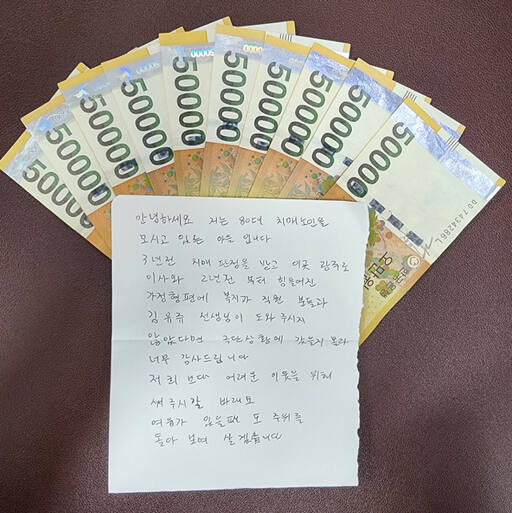 50000
50000
50000
50000
50000
50000
50000
50000
50000
50000
안녕하세요 저는 80대 치매노인을
모시고 있는 아들 입니다
3년전 치매 판정을 받고 이곳 광주로
이사와 2년전 부터 힘들어진
가정형편에 복지과 직원 분들과
김유류 선생님이 도와 주시지
않았다면 극단상황에 갔을지 몰라
너무 감사드립니다
저희 보다 어려운 이웃을 위해
써주시길 바래요
여유가 있을때 또 주위를
돌아 보며 살겠습니다